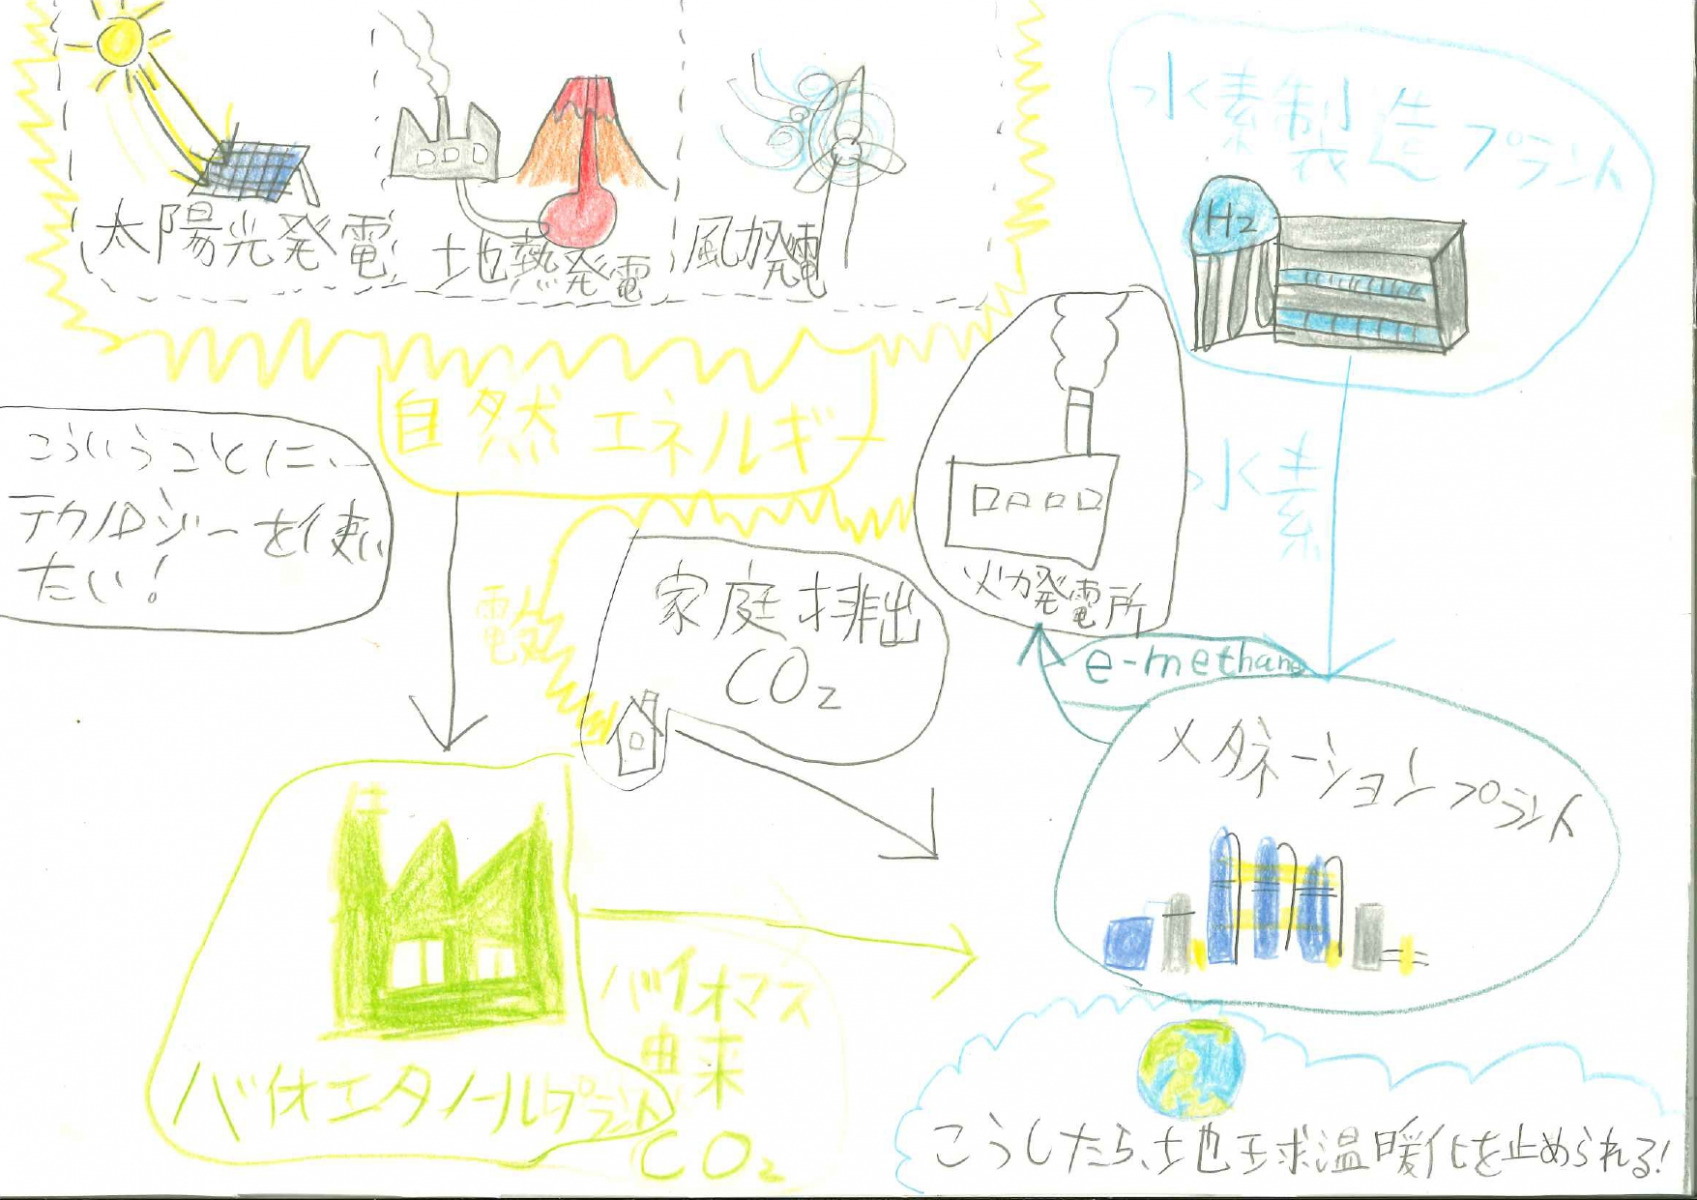 太陽光発電
地熱発電
風力発電
水素製造プラント
H2
自然エネルギー
こういうことに、
テクノロジーを使い
たい!
水素
火力発電所
電気
家庭排出
CO2
e-methane
メタネーションプラント
バイオエタノールプラント
バイオマス
由来
CO2
こうしたら、地球温暖化を止められる!